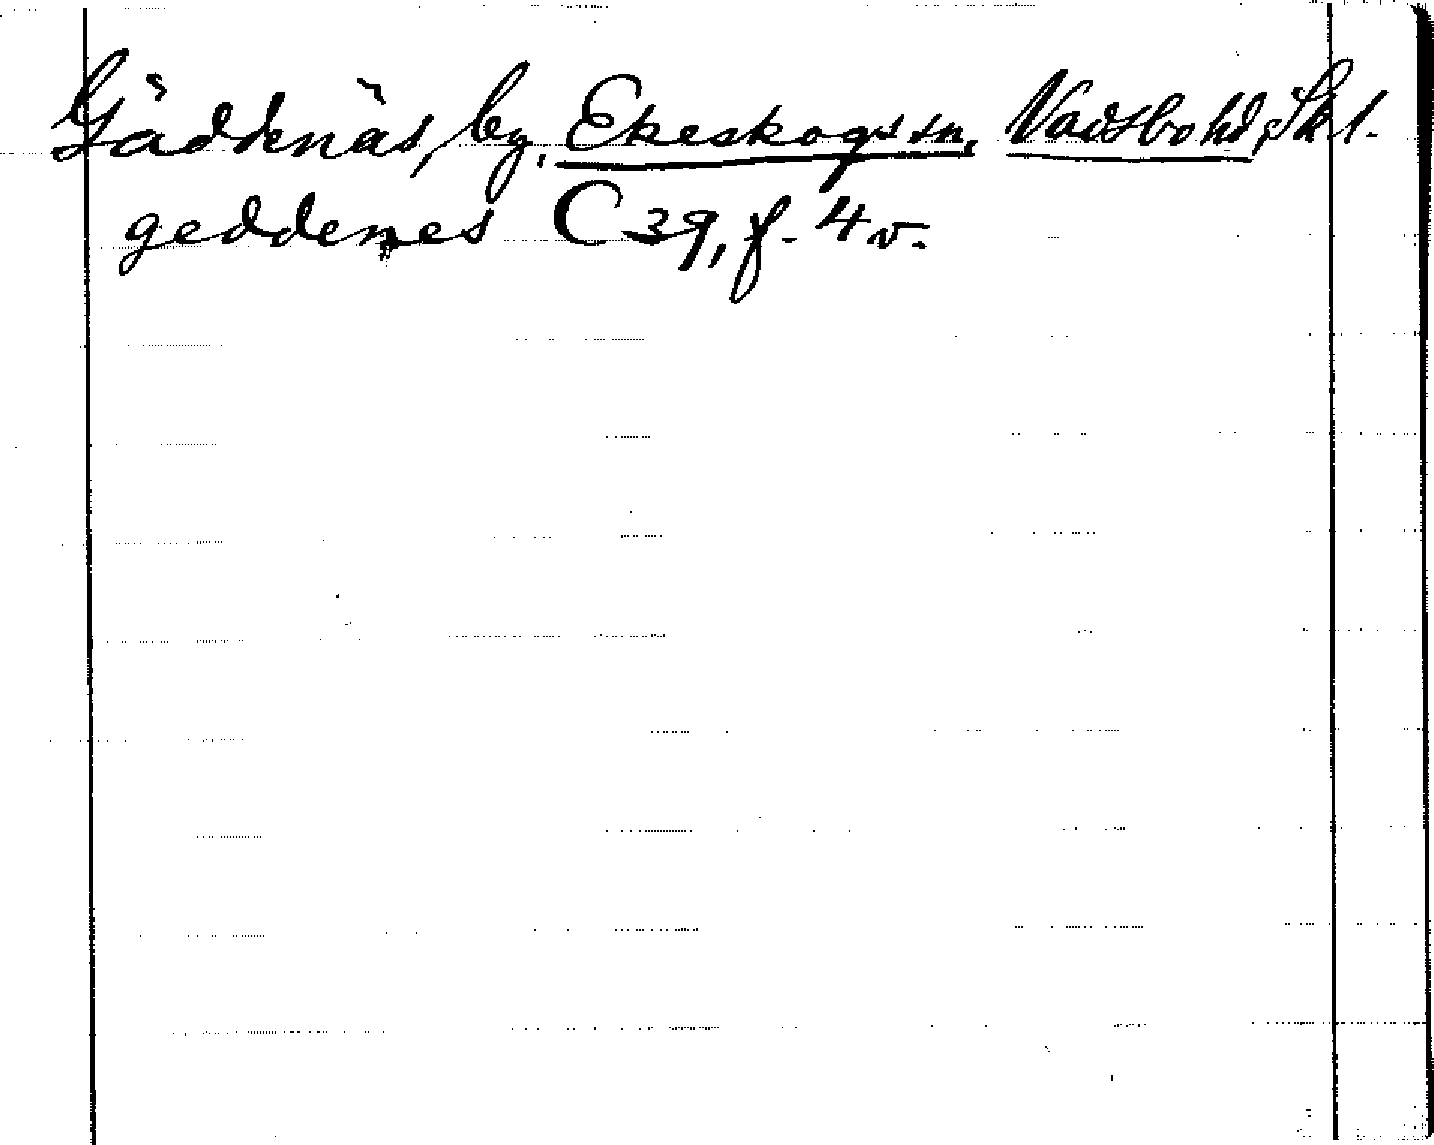 Gäddenäs, by, Ekeskogs sn, Vadsbo hd, Skl.
geddenes C 39, f. 4 v.